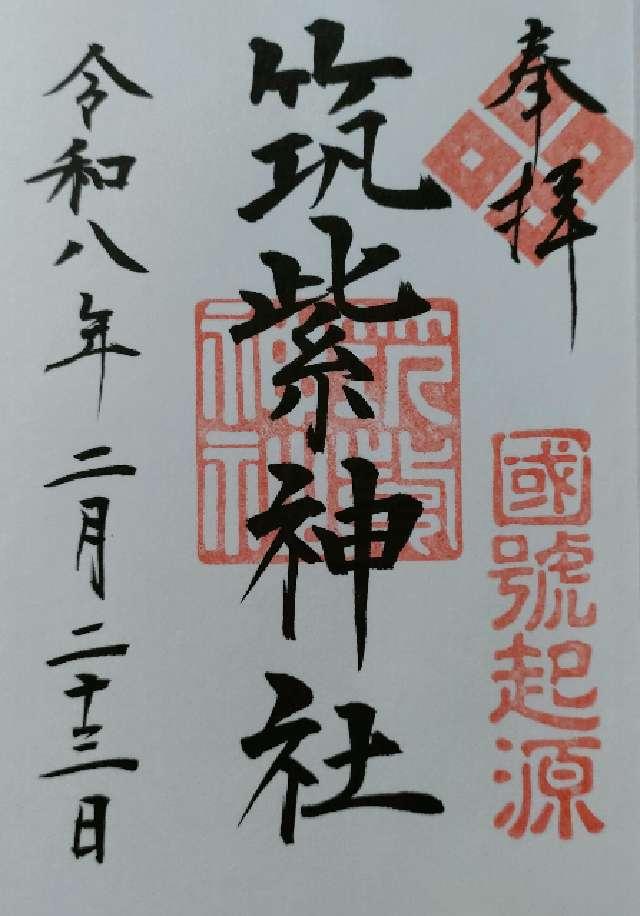 奉拝
國號起源
筑紫神社
令和八年二月二十三日